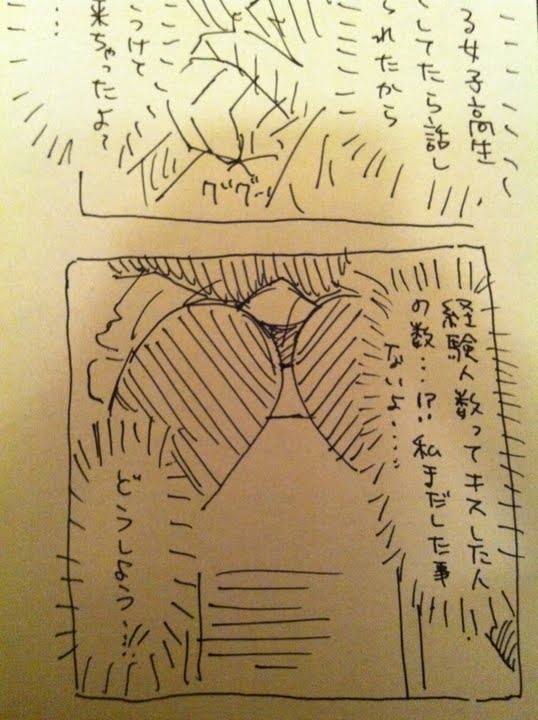 る女子高生
してたら話し
られたから
つけと
来ちゃったよ〜
…
グググ
経験人数ってキスした人
の数…!? 私まだした事
ないよ……
どうしよう……